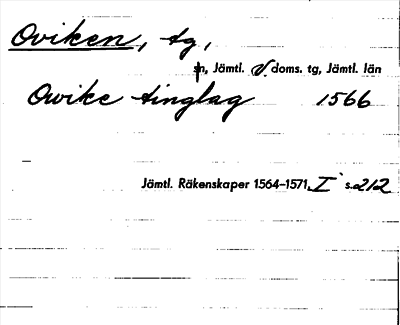 Oviken, tg,
sn, Jämtl. V. doms. tg, Jämtl. län
Owike tinglag 1566
Jämtl. Räkenskaper 1564–1571, I s. 212